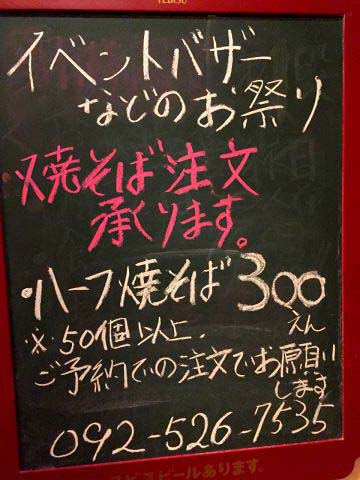 YEBISU
イベントバザー
などのお祭り
焼そば注文
承ります。
・ハーフ焼そば300
えん
※50個以上
ご予約での注文でお願い
します
092-526-7535
ヱビスビールあります。